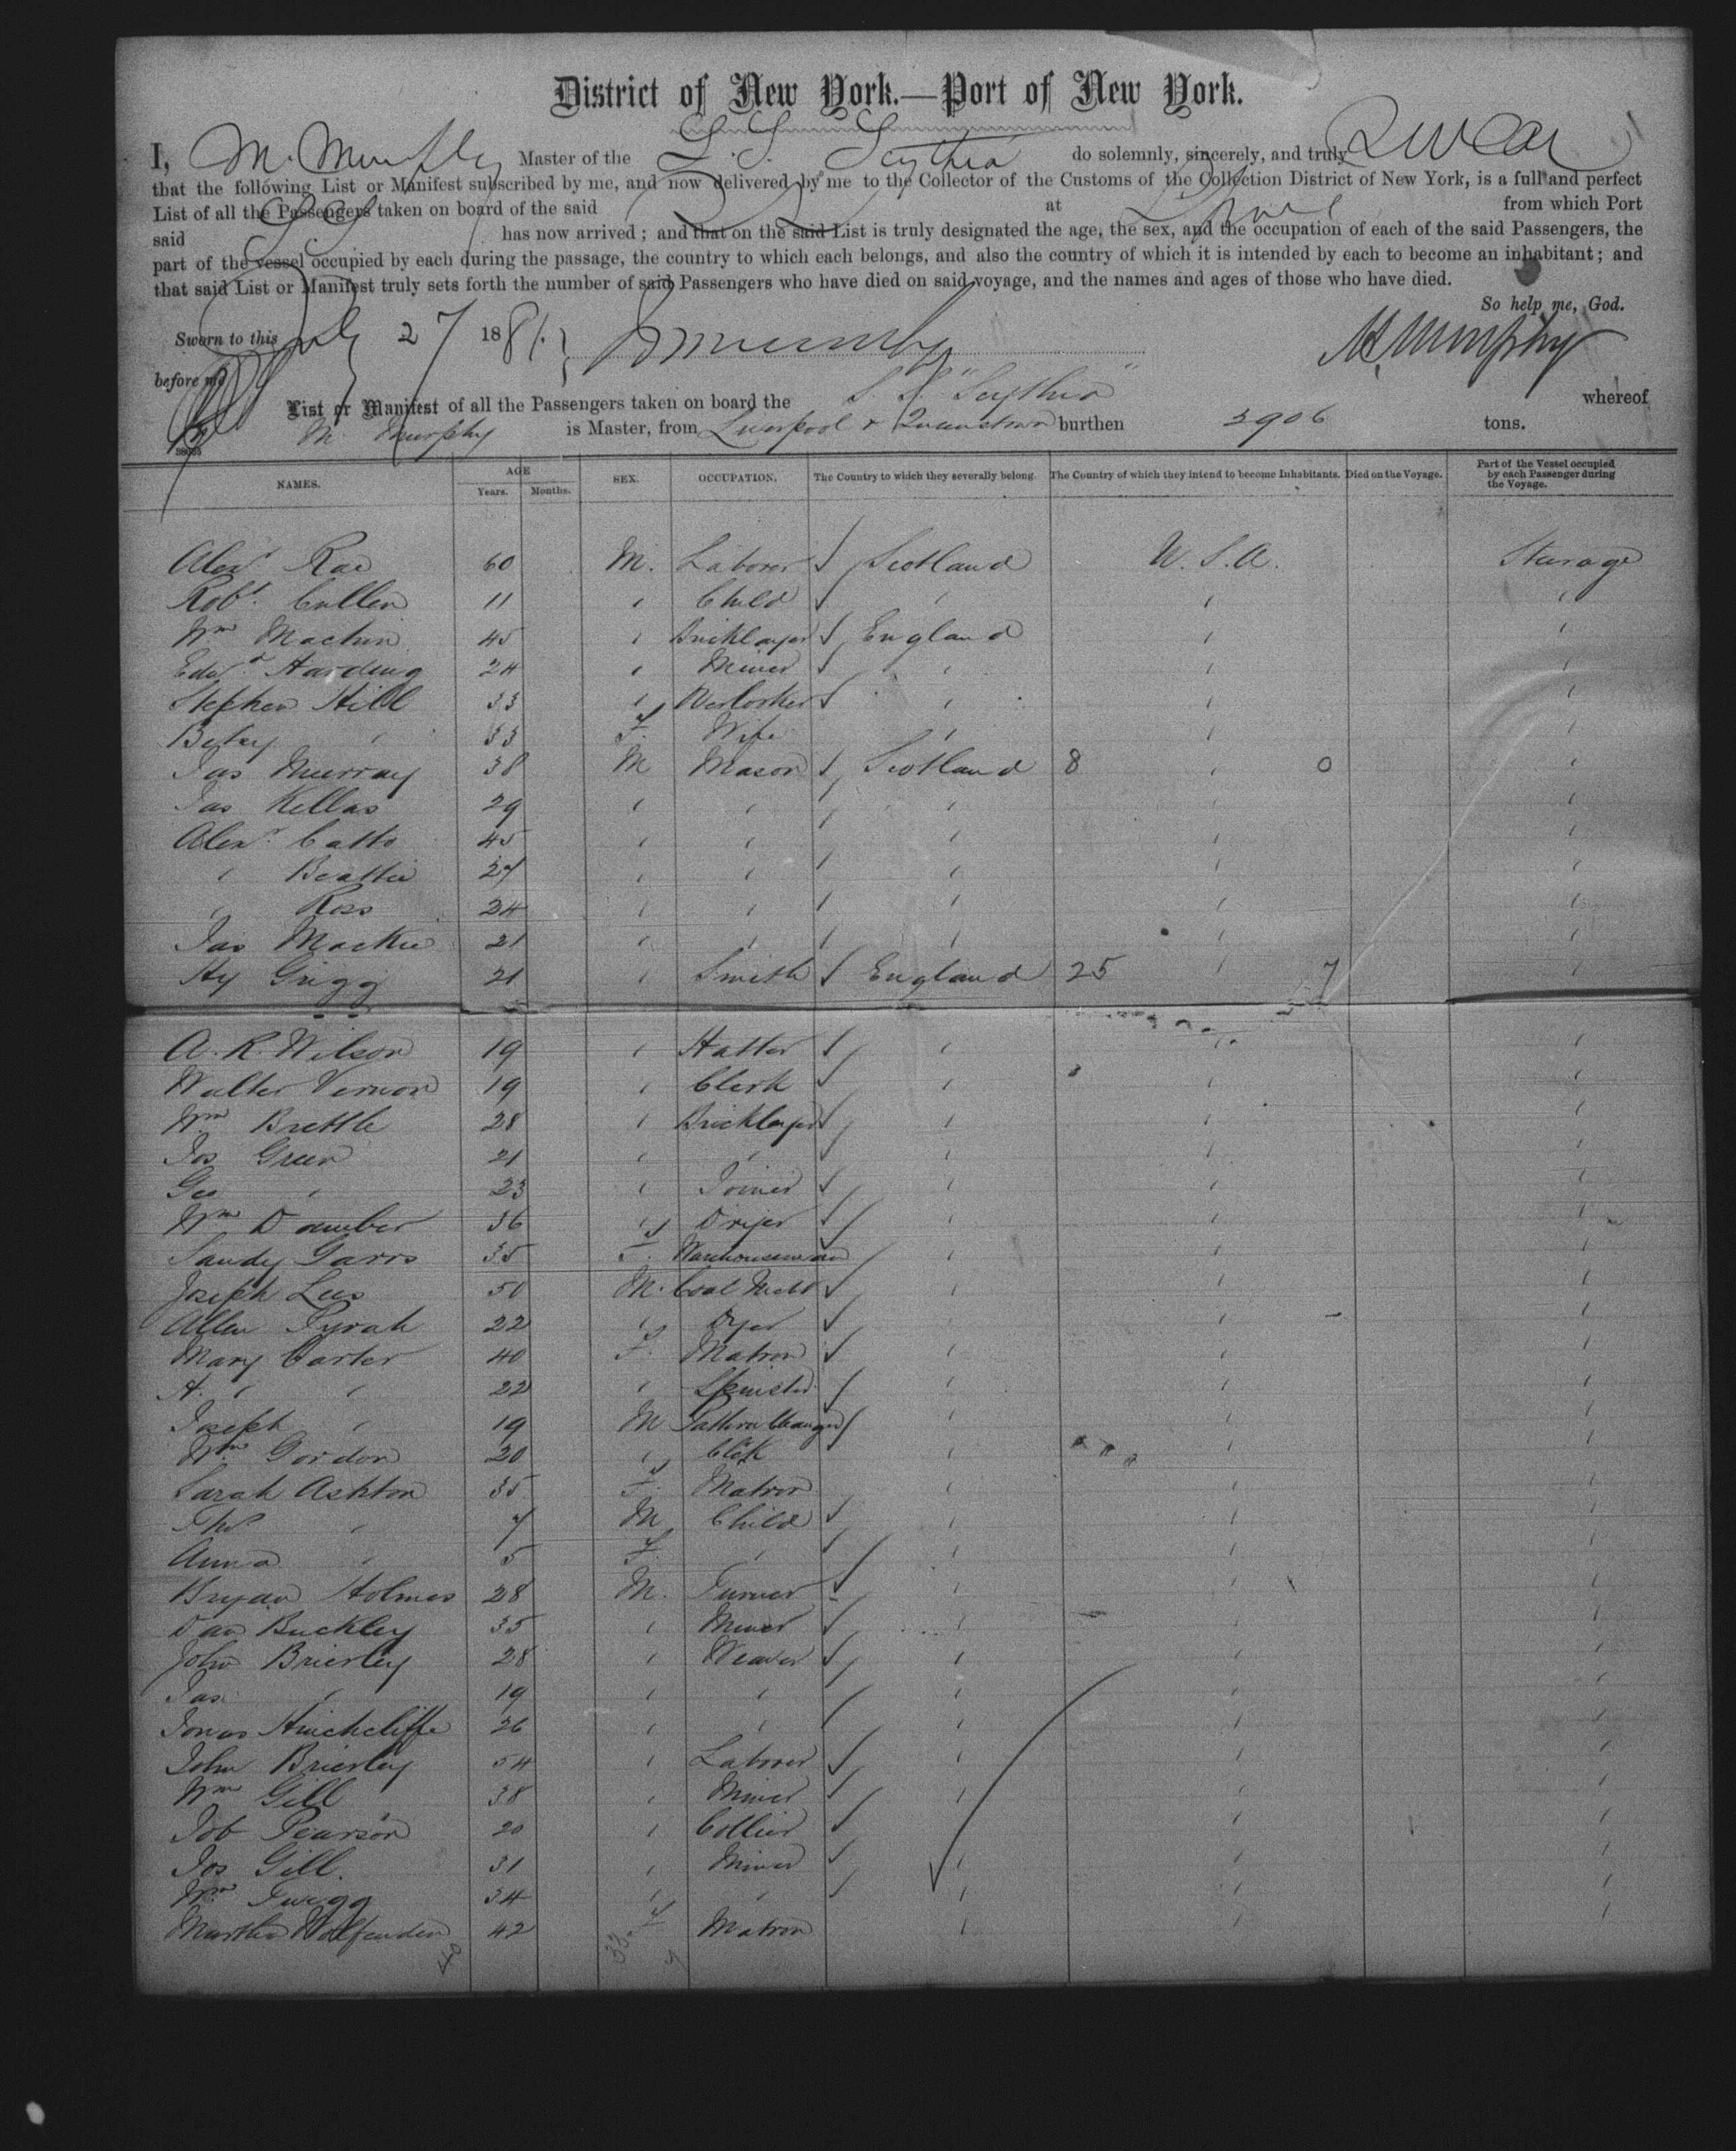 District of New York.—Port of New York.
I, M. Murphy Master of the S.S. Scythia do solemnly, sincerely, and truly swear
that the following List or Manifest subscribed by me, and now delivered by me to the Collector of the Customs of the Collection District of New York, is a full and perfect
List of all the Passengers taken on board of the said at L'pool from which Port
said has now arrived; and that on the said List is truly designated the age, the sex, and the occupation of each of the said Passengers, the
part of the vessel occupied by each during the passage, the country to which each belongs, and also the country of which it is intended by each to become an inhabitant; and
that said List or Manifest truly sets forth the number of said Passengers who have died on said voyage, and the names and ages of those who have died.
So help me, God.
Sworn to this July 27 1881. M. Murphy
before me
List or Manifest of all the Passengers taken on board the S.S. "Scythia" whereof
M. Murphy is Master, from Liverpool & Queenstown burthen 2906 tons.
NAMES. AGE Years. Months. SEX. OCCUPATION. The Country to which they severally belong. The Country of which they intend to become Inhabitants. Died on the Voyage. Part of the Vessel occupied by each Passenger during the Voyage.
Alexr Rae 60 M. Laborer Scotland U.S.A. Sturage
Robt. Cullen 11 " Child " " "
Wm Machin 45 " Bricklayer England " "
Edwd Harding 24 " Miner " " "
Stephen Hill 33 " Overlooker " " "
Betsy " 33 F. Wife " " "
Jas Murray 38 M Mason Scotland 8 " 0 "
Jas Kellas 29 " " " " "
Alexr. Catto 45 " " " " "
" Beattie 27 " " " " "
" Ross 24 " " " " "
Jas Mackie 21 " " " " "
Hy Grigg 21 " Smith England 25 " 7 "
A. R. Wilson 19 " Hatter " " "
Walter Vernon 19 " Clerk " " "
Wm Brettle 28 " Bricklayer " " "
Jos Green 21 " " " " "
Geo " 23 " Joiner " " "
Wm 36 " " " "
Sandy Garrs 35 F. Warehousewoman " " "
Joseph Lees 50 M. Coal " " "
Allen Pyrah 22 " Dyer " " "
Mary Carter 40 F. Matron " " "
A. " " 22 " Spinster " " "
Joseph " 19 M Pattern Changer " " "
Wm. Gordon 20 " Clk " " "
Sarah Ashton 35 F. Matron " " "
Thos " 7 M Child " " "
Anna " 5 F. " " " "
Bryan Holmes 28 M. Turner " " "
Dan Buckley 35 " Miner " " "
John Brierley 28 " Weaver " " "
Jas " 19 " " " " "
Jonas Hinchcliffe 26 " " " " "
John Brierley 54 " Laborer " " "
Wm Gill 38 " Miner " " "
Job Pearson 20 " Collier " " "
Jos Gill. 31 " Miner " " "
Wm. Twigg 34 " " " " "
Martha Wolfenden 42 F Matron " " "
40 33